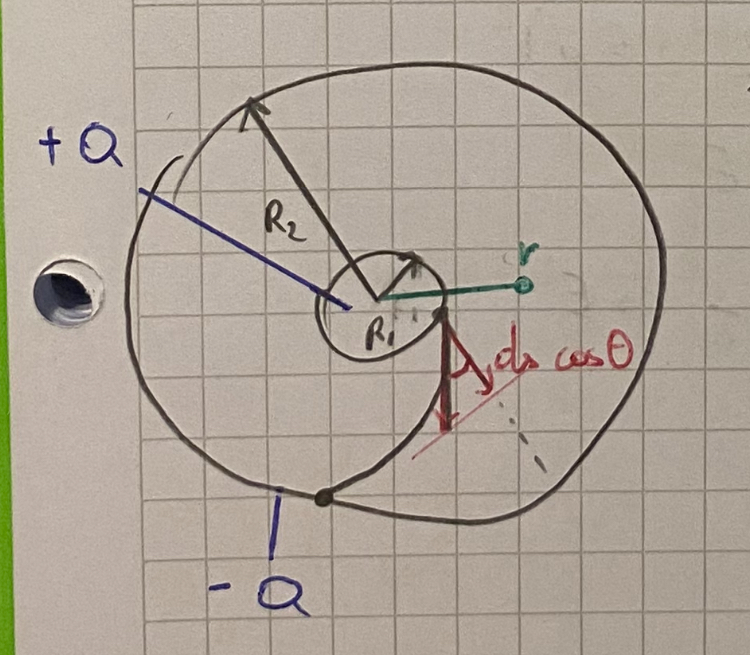 + Q
R₂
r
R₁
ds cos θ
- Q